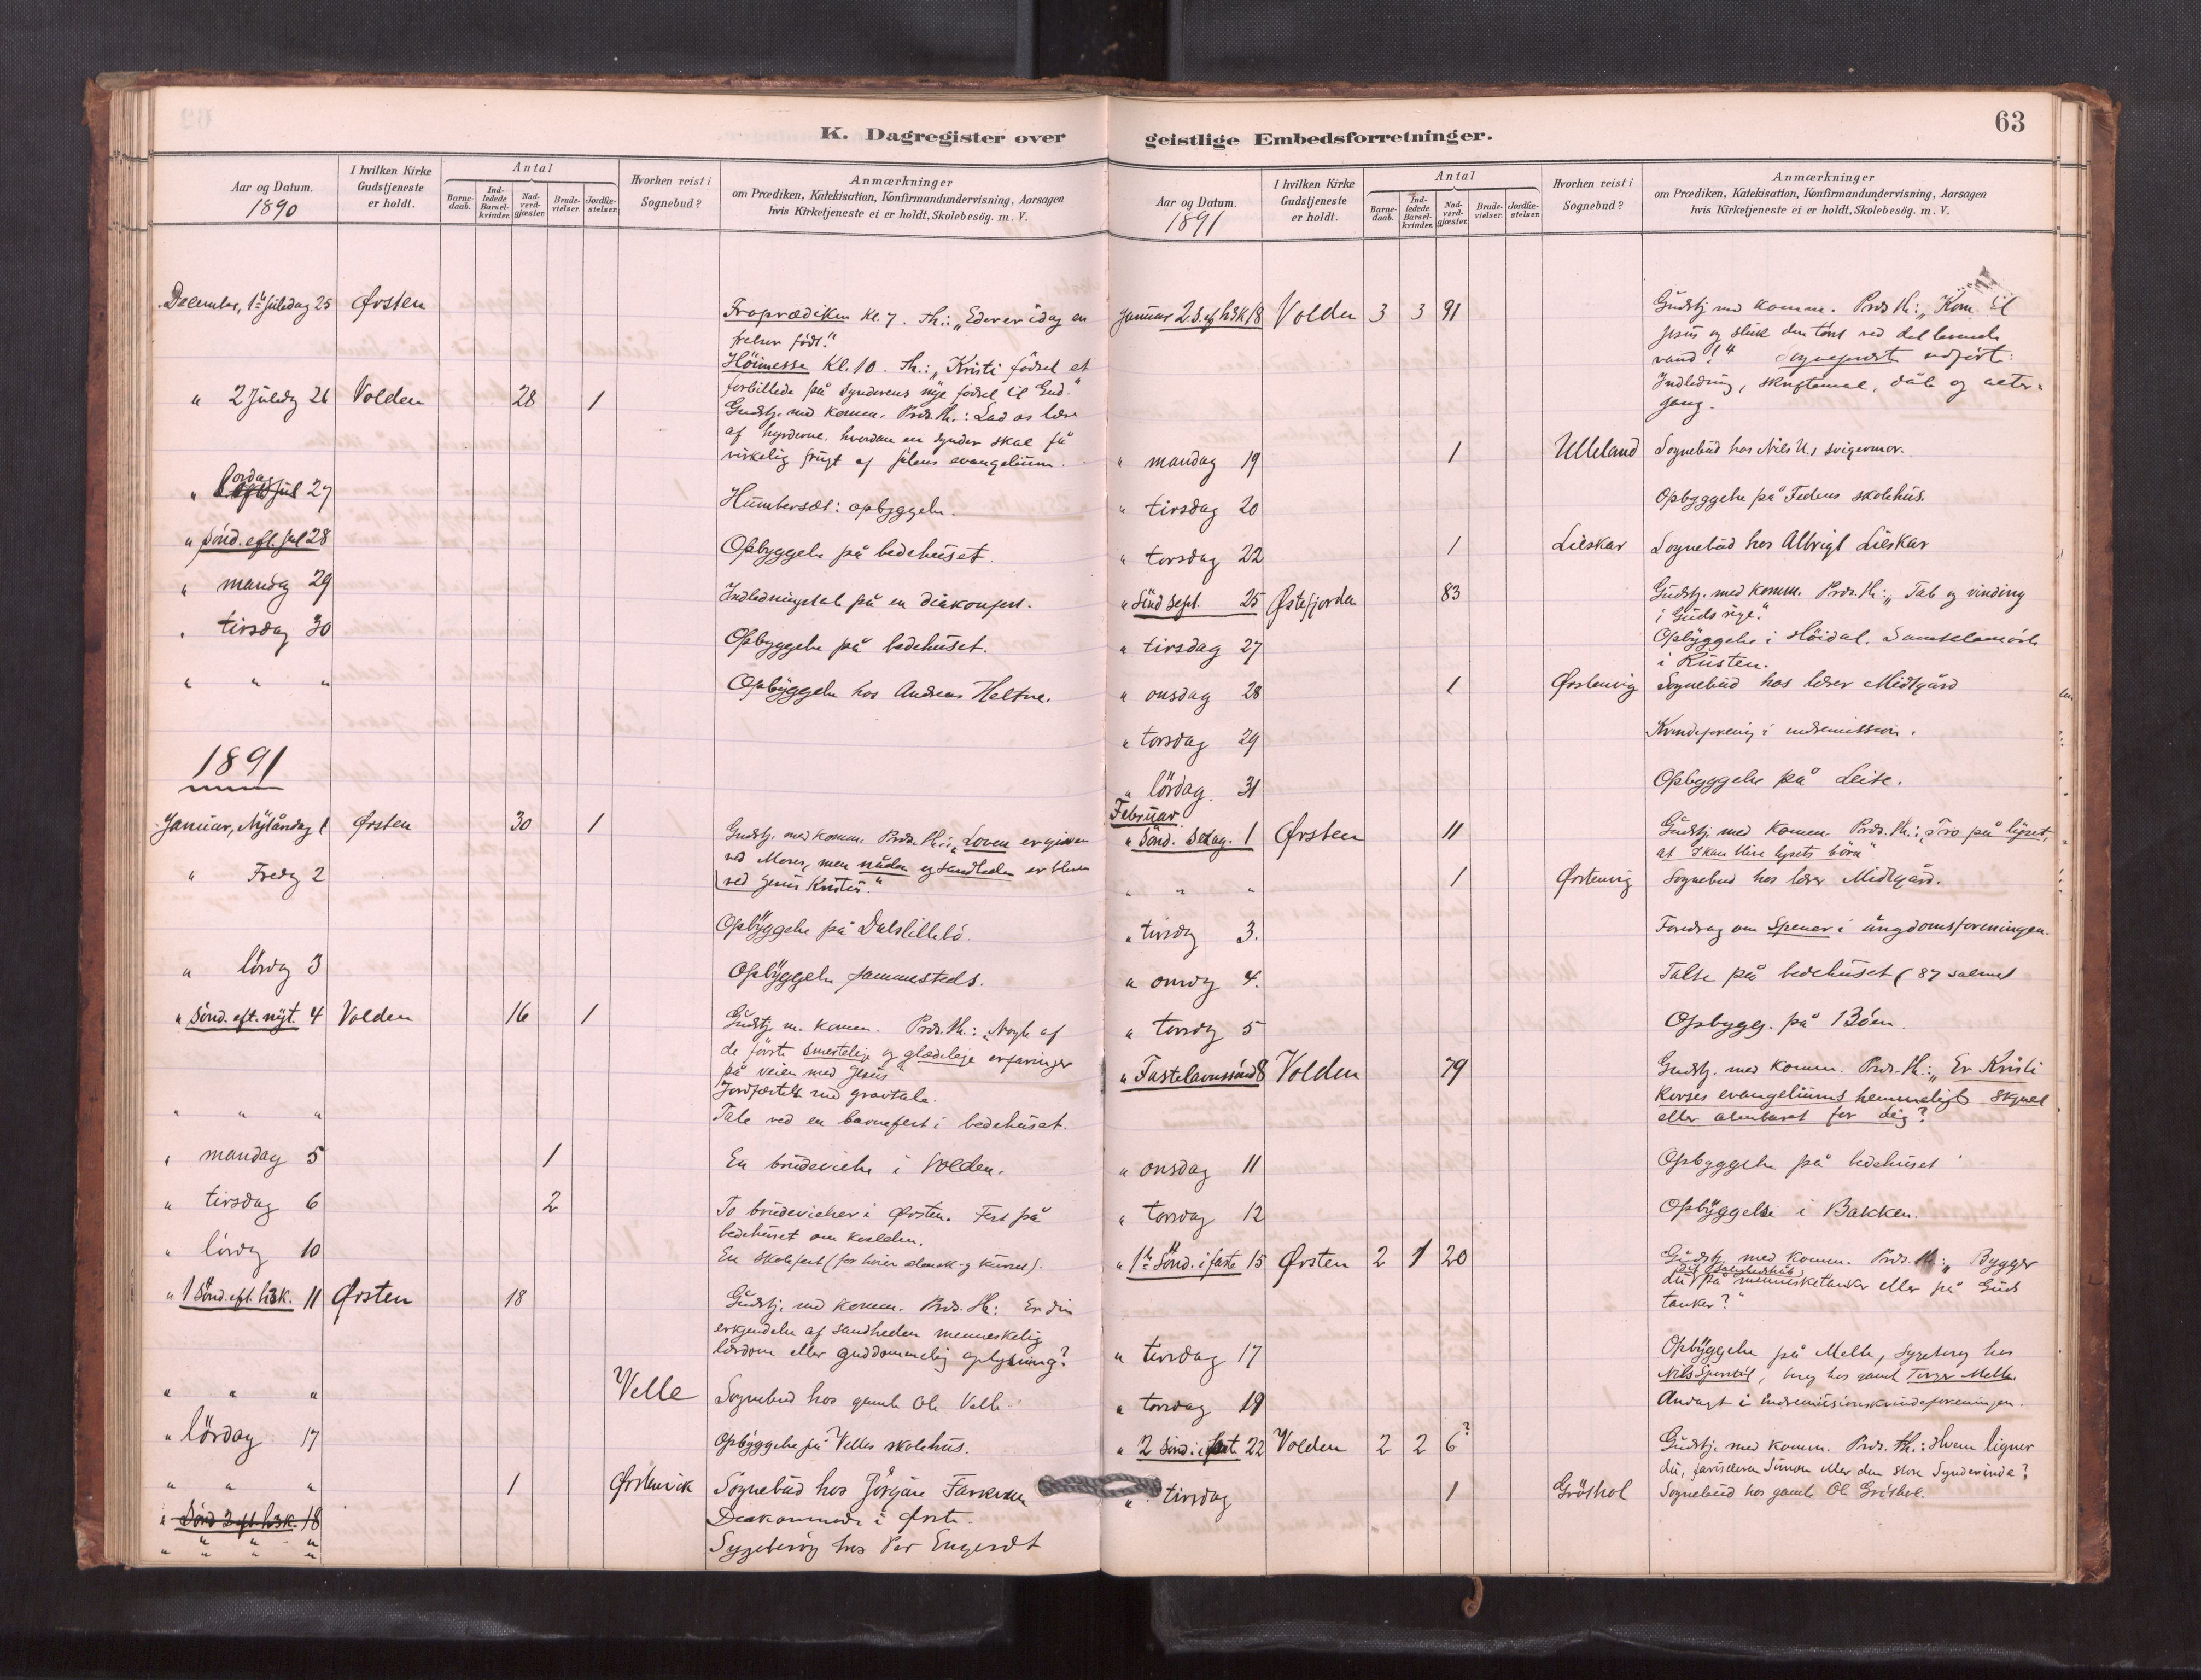 K. Dagregister over
Aar og Datum.
1890
I hvilken Kirke
Gudstjeneste
er holdt.
Antal
Barne-
daab.
Ind-
ledede
Barsel-
kvinder.
Nad-
verd-
gjæster.
Brude-
vielser.
Jordfæ-
stelser.
Hvorhen reist i
Sognebud?
Anmærkninger
om Prædiken, Katekisation, Konfirmandundervisning, Aarsagen
hvis Kirketjeneste ei er holdt, Skolebesög. m. V.
December, 1ste Juledag 25 Ørsten
Froprædiken kl. 7. Th.: „Eder er idag en
frelser födt."
Höimesse kl. 10. Th.: „Kristi födsel et
forbillede på synderens nye födsel til Gud."
" 2 Juledg 26 Volden 28 1
Gudstj. med komm. Præd. th.: Lad os lære
af hyrderne, hvordan en synder skal få
virkelig frugt af julens evangelium.
" lordag 27
Humbersæt: opbyggelse.
" Sönd. eft. jul 28
Opbyggelse på bedehuset.
" mandg 29
Indledningstale på en diakonfest.
" tirsdag 30
Opbyggelse på bedehuset.
" " "
Opbyggelse hos Andreas Heltne.
1891
Januar, Nytårsdag 1 Ørsten 30 1
Gudstj. med komm. Præd. th.: „Loven er given
ved Moses, men nåden og sandheden er bleven
ved Jesus Kristus."
" Fredg 2
Opbyggelse på Dalslillebö.
" lördg 3
Opbyggelse sammesteds.
" Sönd. eft. nyt. 4 Volden 16 1
Gudstj. m. komm. Præd. th.: „Nogle af
de förste smertelige og glædelige erfaringer
på veien med Jesus"
Jordfæstelse med gravtale.
" " "
Tale ved en barnefest i bedehuset.
" mandag 5 1
En brudevielse i Volden.
" tirsdag 6 2
To brudevielser i Ørsten. Fest på
bedehuset om kvelden.
" lördg 10
" 1 Sönd. eft. h3k. 11 Ørsten 18
Gudstj. med komm. Præd. th.: Er din
erkjendelse af sandheden menneskelig
lærdom eller guddommelig oplysning?
" " " Velle
Sognebud hos gamle Ole Velle.
" lördag 17
Opbyggelse på Velles skolehus.
" " " 1 Ørstenvik
Sognebud hos Jörgine
" Sönd 2 eft. h3k. 18
" " " "
Sygebesög hos Per
geistlige Embedsforretninger.
63
Aar og Datum.
1891
I hvilken Kirke
Gudstjeneste
er holdt.
Antal
Barne-
daab.
Ind-
ledede
Barsel-
kvinder.
Nad-
verd-
gjæster.
Brude-
vielser.
Jordfæ-
stelser.
Hvorhen reist i
Sognebud?
Anmærkninger
om Prædiken, Katekisation, Konfirmandundervisning, Aarsagen
hvis Kirketjeneste ei er holdt, Skolebesög. m. V.
Januar 2.S.ef h3k 18 Volden 3 3 91
Gudstj med komm. Præd. th.: „Kom til
Jesus og sluk din törst ved det levende
vand!" Sognepresten udførte:
Indledning, skriftemål, dåb og alter-
gang.
" mandag 19 1 Ulleland
Sognebud hos Nils U.s svigermor.
" tirsdag 20
Opbyggelse på skolehus.
" torsdag 22 1 Lilskar
Sognebud hos Albrigt Lilskar
" Sönd sept. 25 Østefjorden 83
Gudstj. med komm. Præd. th.: „Tab og vinding
i Guds rige."
" tirsdag 27
Opbyggelse i Höidal. Samtalemöde
i Rusten.
" onsdag 28 1 Ørstenvig
Sognebud hos lærer Midtgård
" torsdag 29
Kvindeforening i indremission.
" lördag. 31
Opbyggelse på Leite.
Februar
" Sönd. sexag. 1 Ørsten 11
Gudstj. med komm. Præd. th.: „Tro på lyset,
at I kan blive lysets börn"
" " " 1 Ørstenvig
Sognebud hos lærer Midtgård.
" tirsdg 3.
Foredrag om Spener i ungdomsforeningen.
" onsdg 4.
Talte på bedehuset (87 salme)
" torsdg 5
Opbygg. på Böen.
" Fastelavnssönd 8 Volden 79
Gudstj. med komm. Præd. th.: „Er Kristi
korses evangeliums hemmelighed skjult
eller åbenbaret for dig?
" onsdag 11
Opbyggelse på bedehuset
" torsdag 12
Opbyggelse i Bakken.
" 1ste Sönd. i faste 15 Ørsten 2 1 20
Gudstj. med komm. Præd. th.: „Bygger
du dit salighedshåb på mennesketanker eller på Guds
tanker?"
" tirsdag 17
Opbyggelse på Melle, sygebesög hos
Andagt i indremissionskvindeforeningen.
" torsdag 19
" 2 Sönd. i fast. 22 Volden 2 2 6?
Gudstj. med komm. Præd. th.: Hvem ligner
du, farisæeren Simon eller den store Synderinde?
" tirsdag 1 Gröthol
Sognebud hos gamle Ole Gröthol.